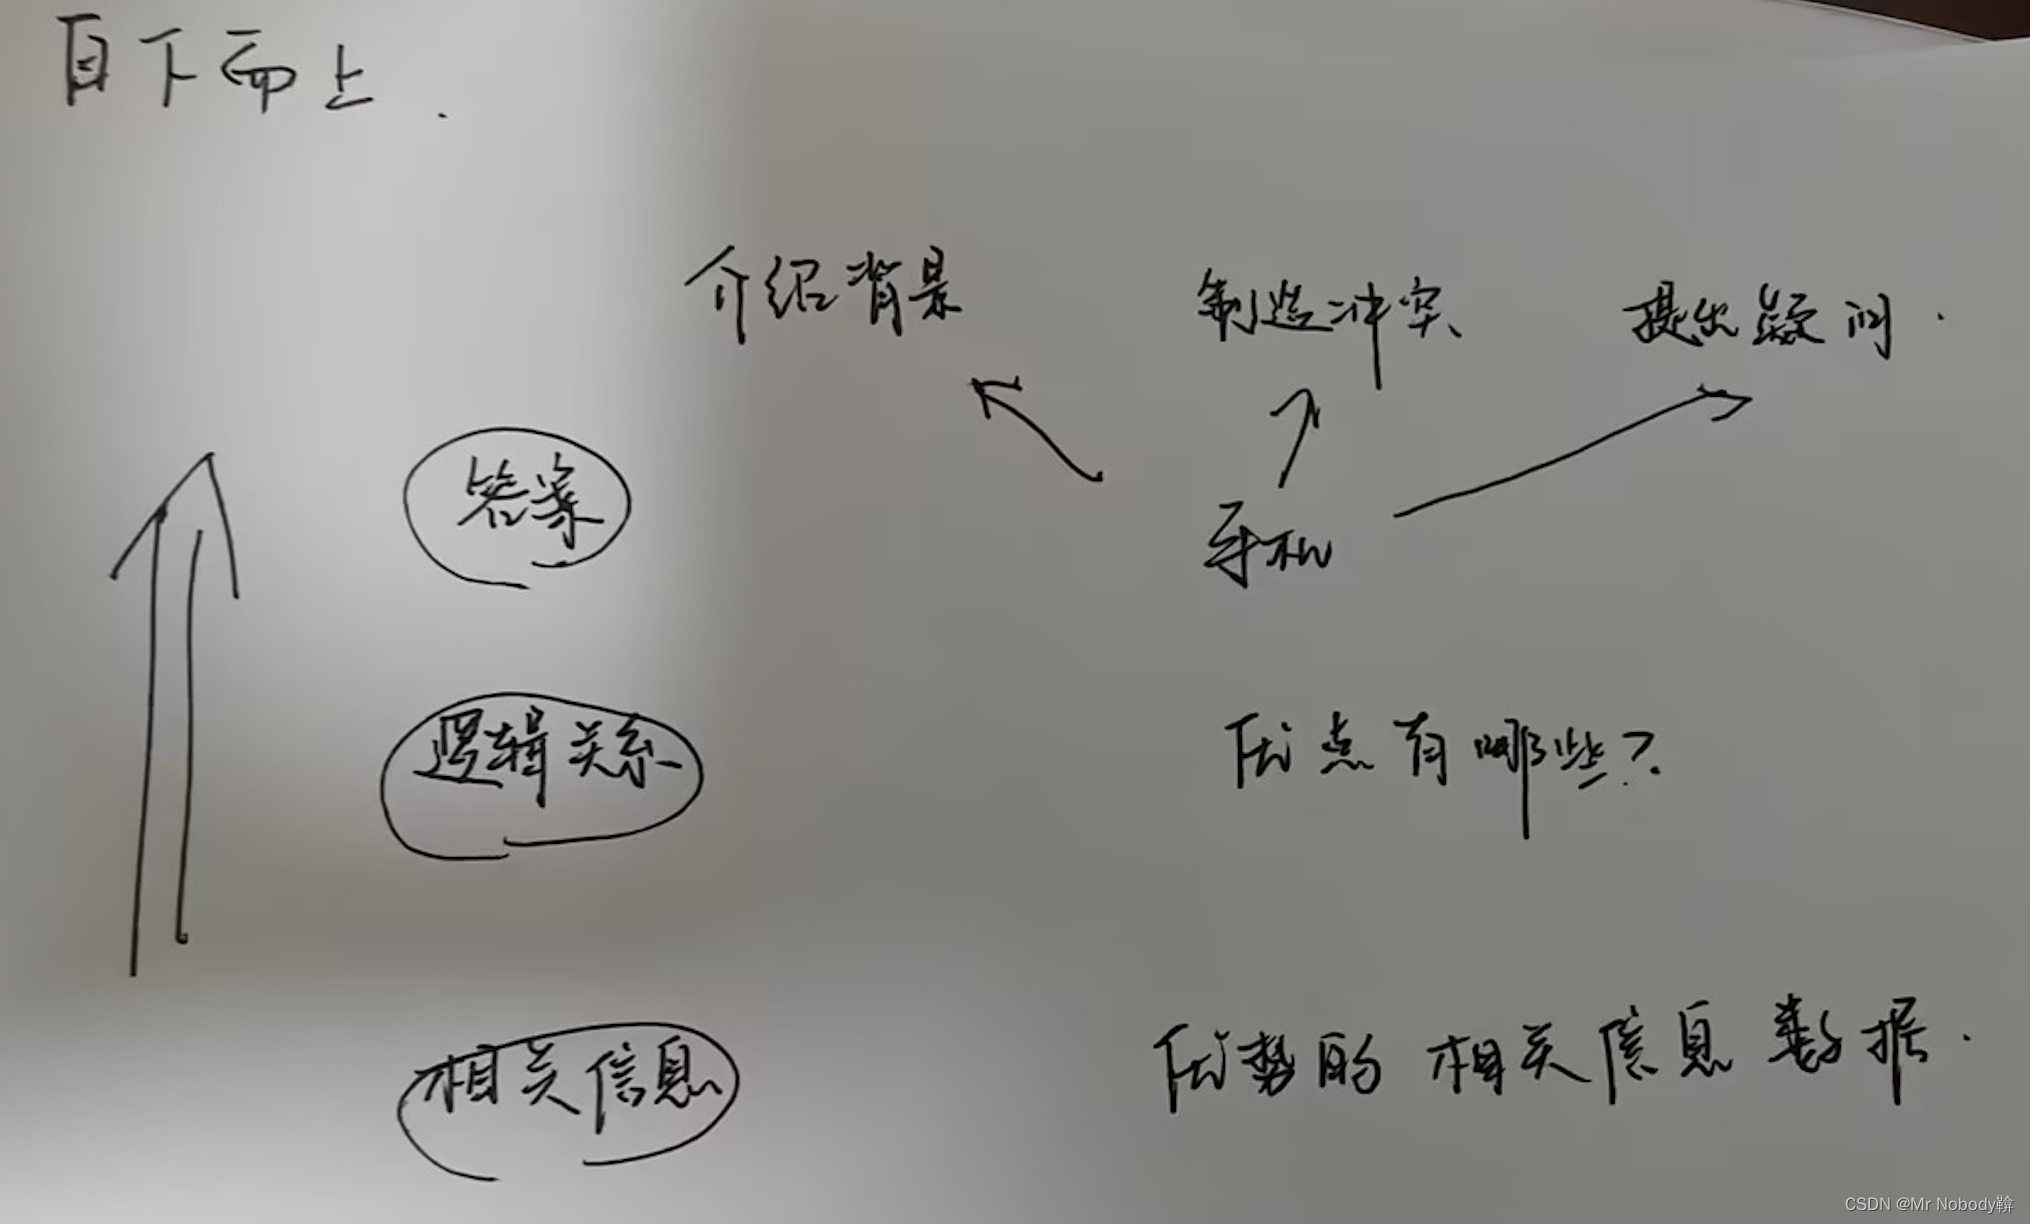 自下而上.
介绍背景 制造冲突 提出疑问.
答案 手机
逻辑关系 优点有哪些?
相关信息 优势的 相关信息 数据.
CSDN @Mr Nobody